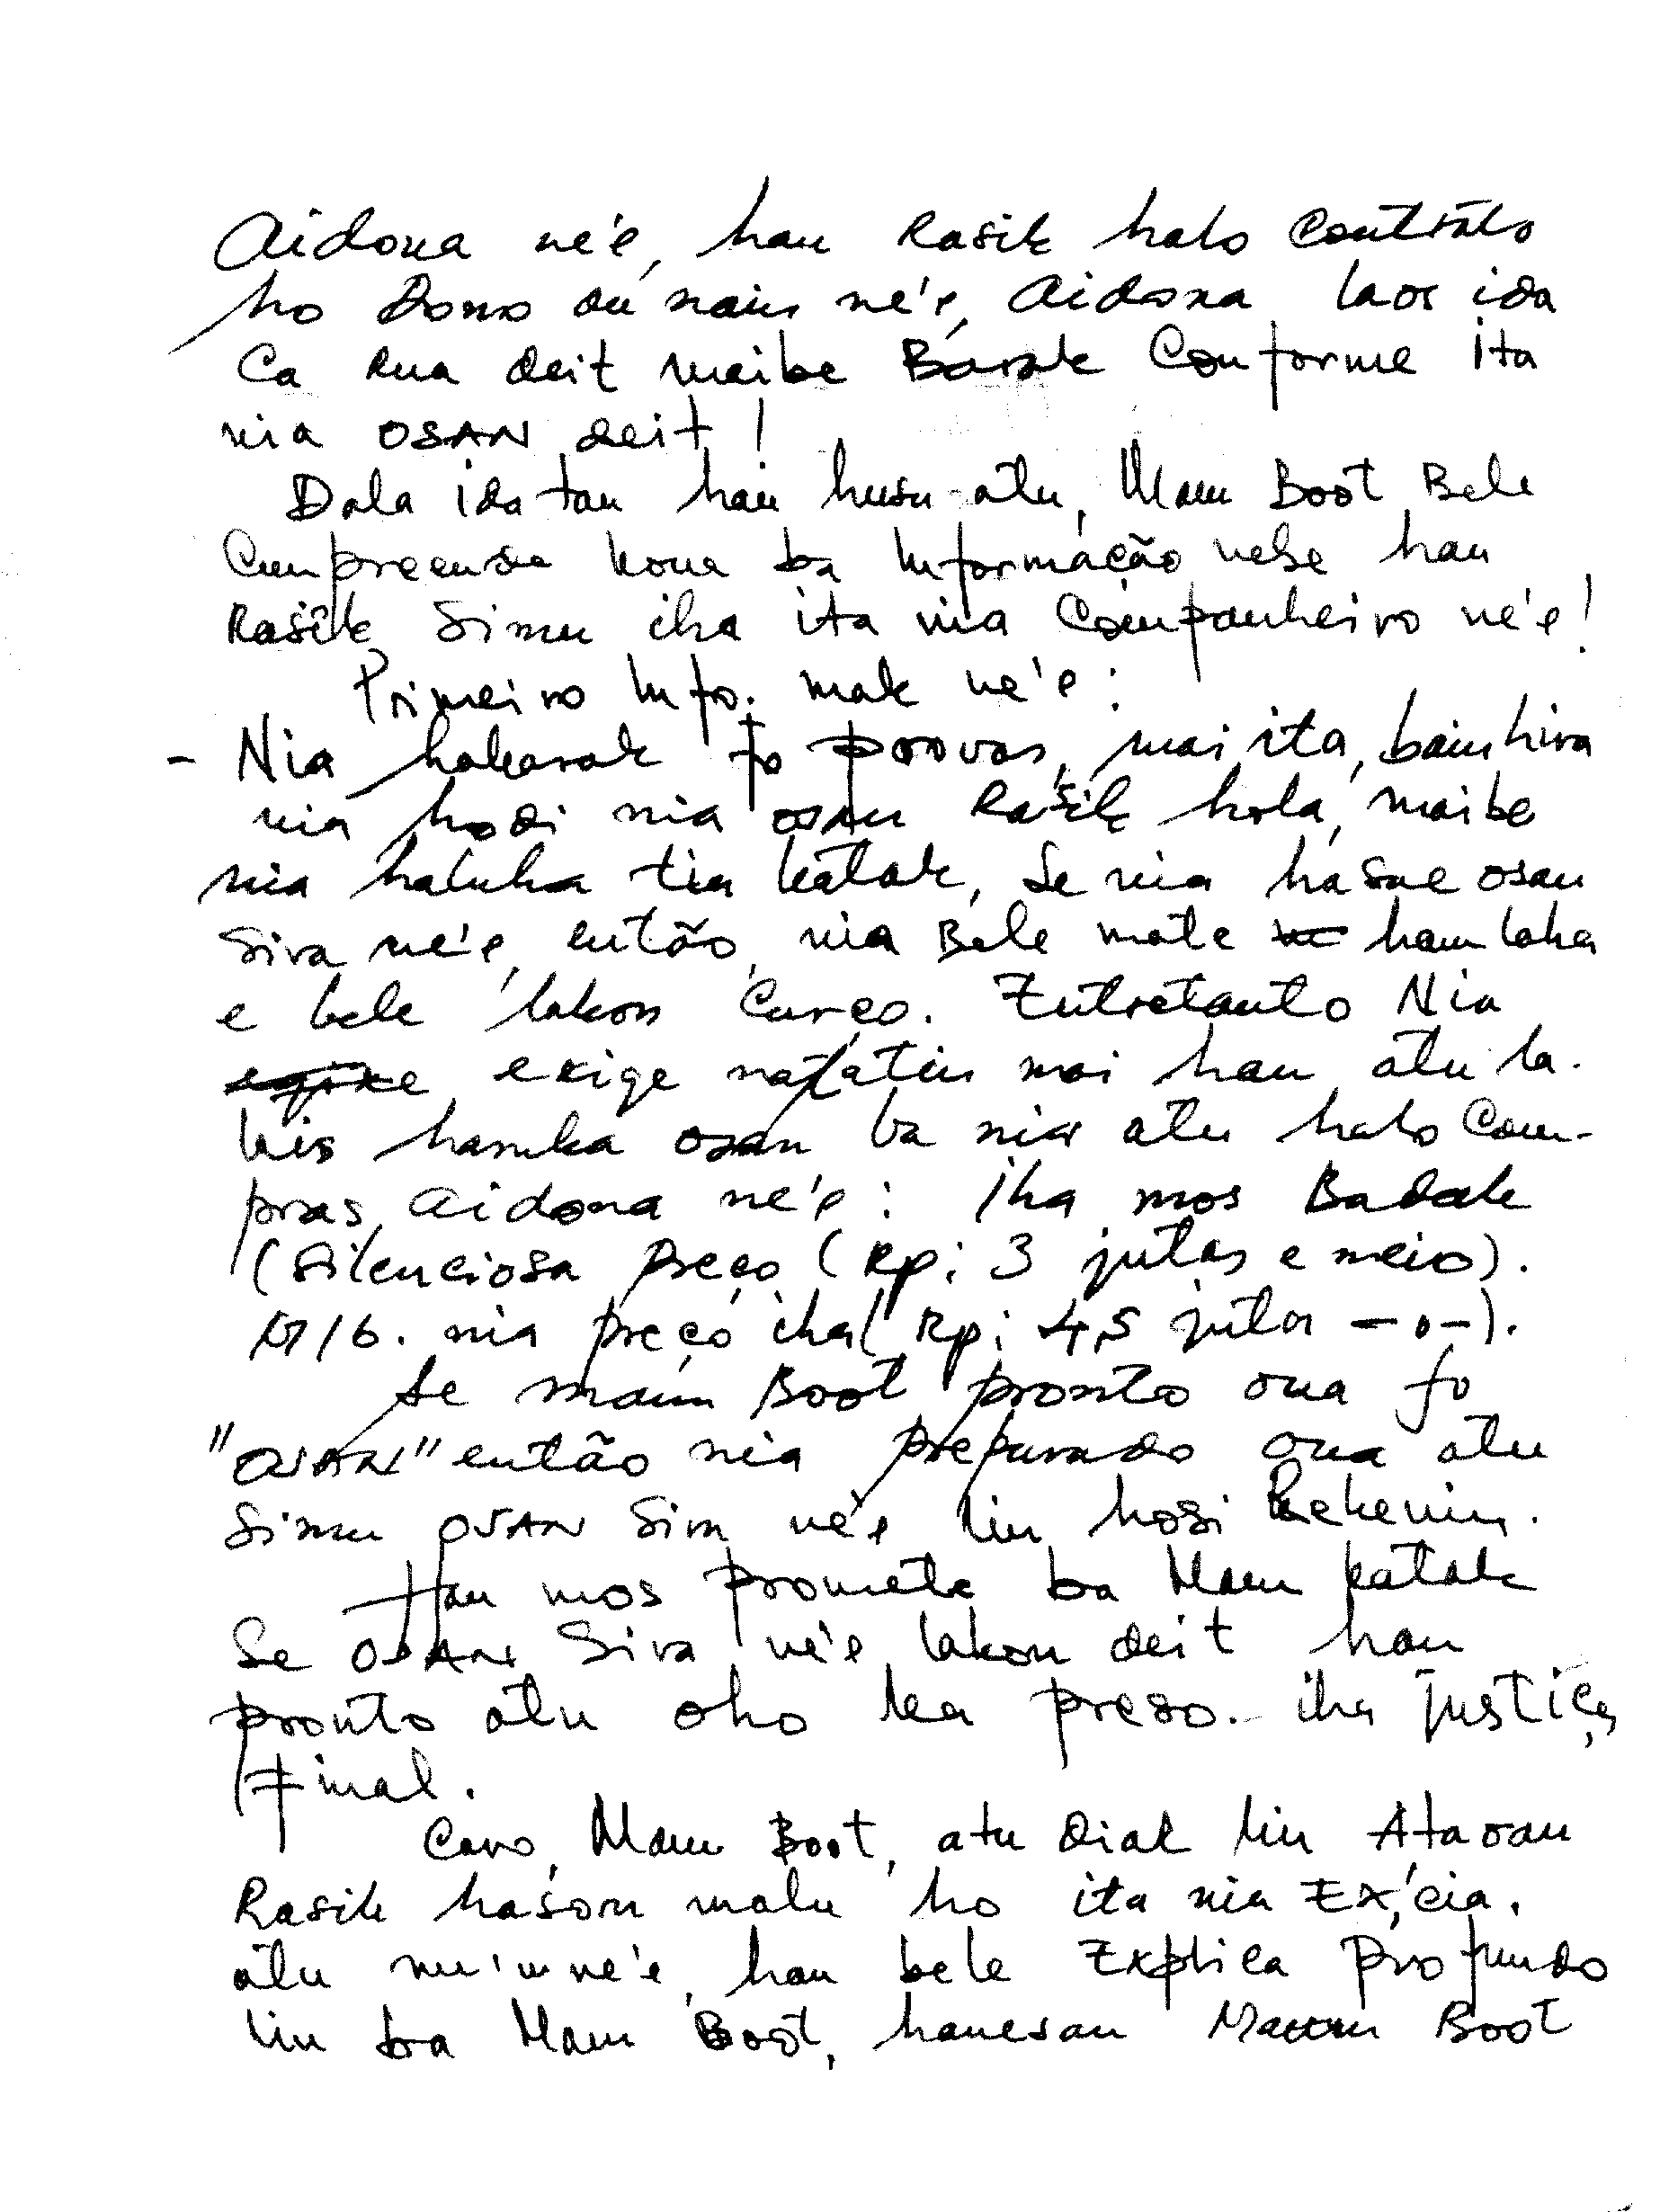 Aidona ne'e, hau Rasik halo Contrato
ho Dono ou nain ne'e, Aidona laos ida
Ca Rua deit maibe Barak Conforme ita
nia OSAN deit!
Dala ida tan hau husu atu, Maun Boot Bele
Cumpreende kona ba Informação nebe hau
Rasik Simu iha ita nia Companheiro ne'e!
Primeiro Info. mak ne'e:
- Nia hakarak fo provas, mai ita, bainhira
nia hodi nia osan Rasik hola, maibe
nia haluha tia katak, Se nia hasae osan
Sira ne'e, então, nia Bele mate hamlaha
e bele lakon Cargo. Entretanto Nia
exige nafatin mai hau atu la-
kis haruka osan ba nia atu halo Com-
pras, Aidona ne'e: iha mos Badak
(Silenciosa Preço (Rp: 3 jutas e meio).
M/16. nia preço iha( Rp: 4,5 jutas -o-).
Se maun Boot pronto ona fo
"OSAN" então nia preparado ona atu
Simu OSAN Sira ne'e liu hosi
Hau mos promete ba Maun katak
Se OSAN Sira ne'e lakon deit hau
pronto atu oho ka preso. iha justiça
Final.
Caro, Maun Boot, atu diak liu Ataran
Rasik hasoru malu ho ita nia Ex,cia.
atu nu'une'e, hau bele Explica Profundo
liu ba Maun Boot, hanesan Maun Boot